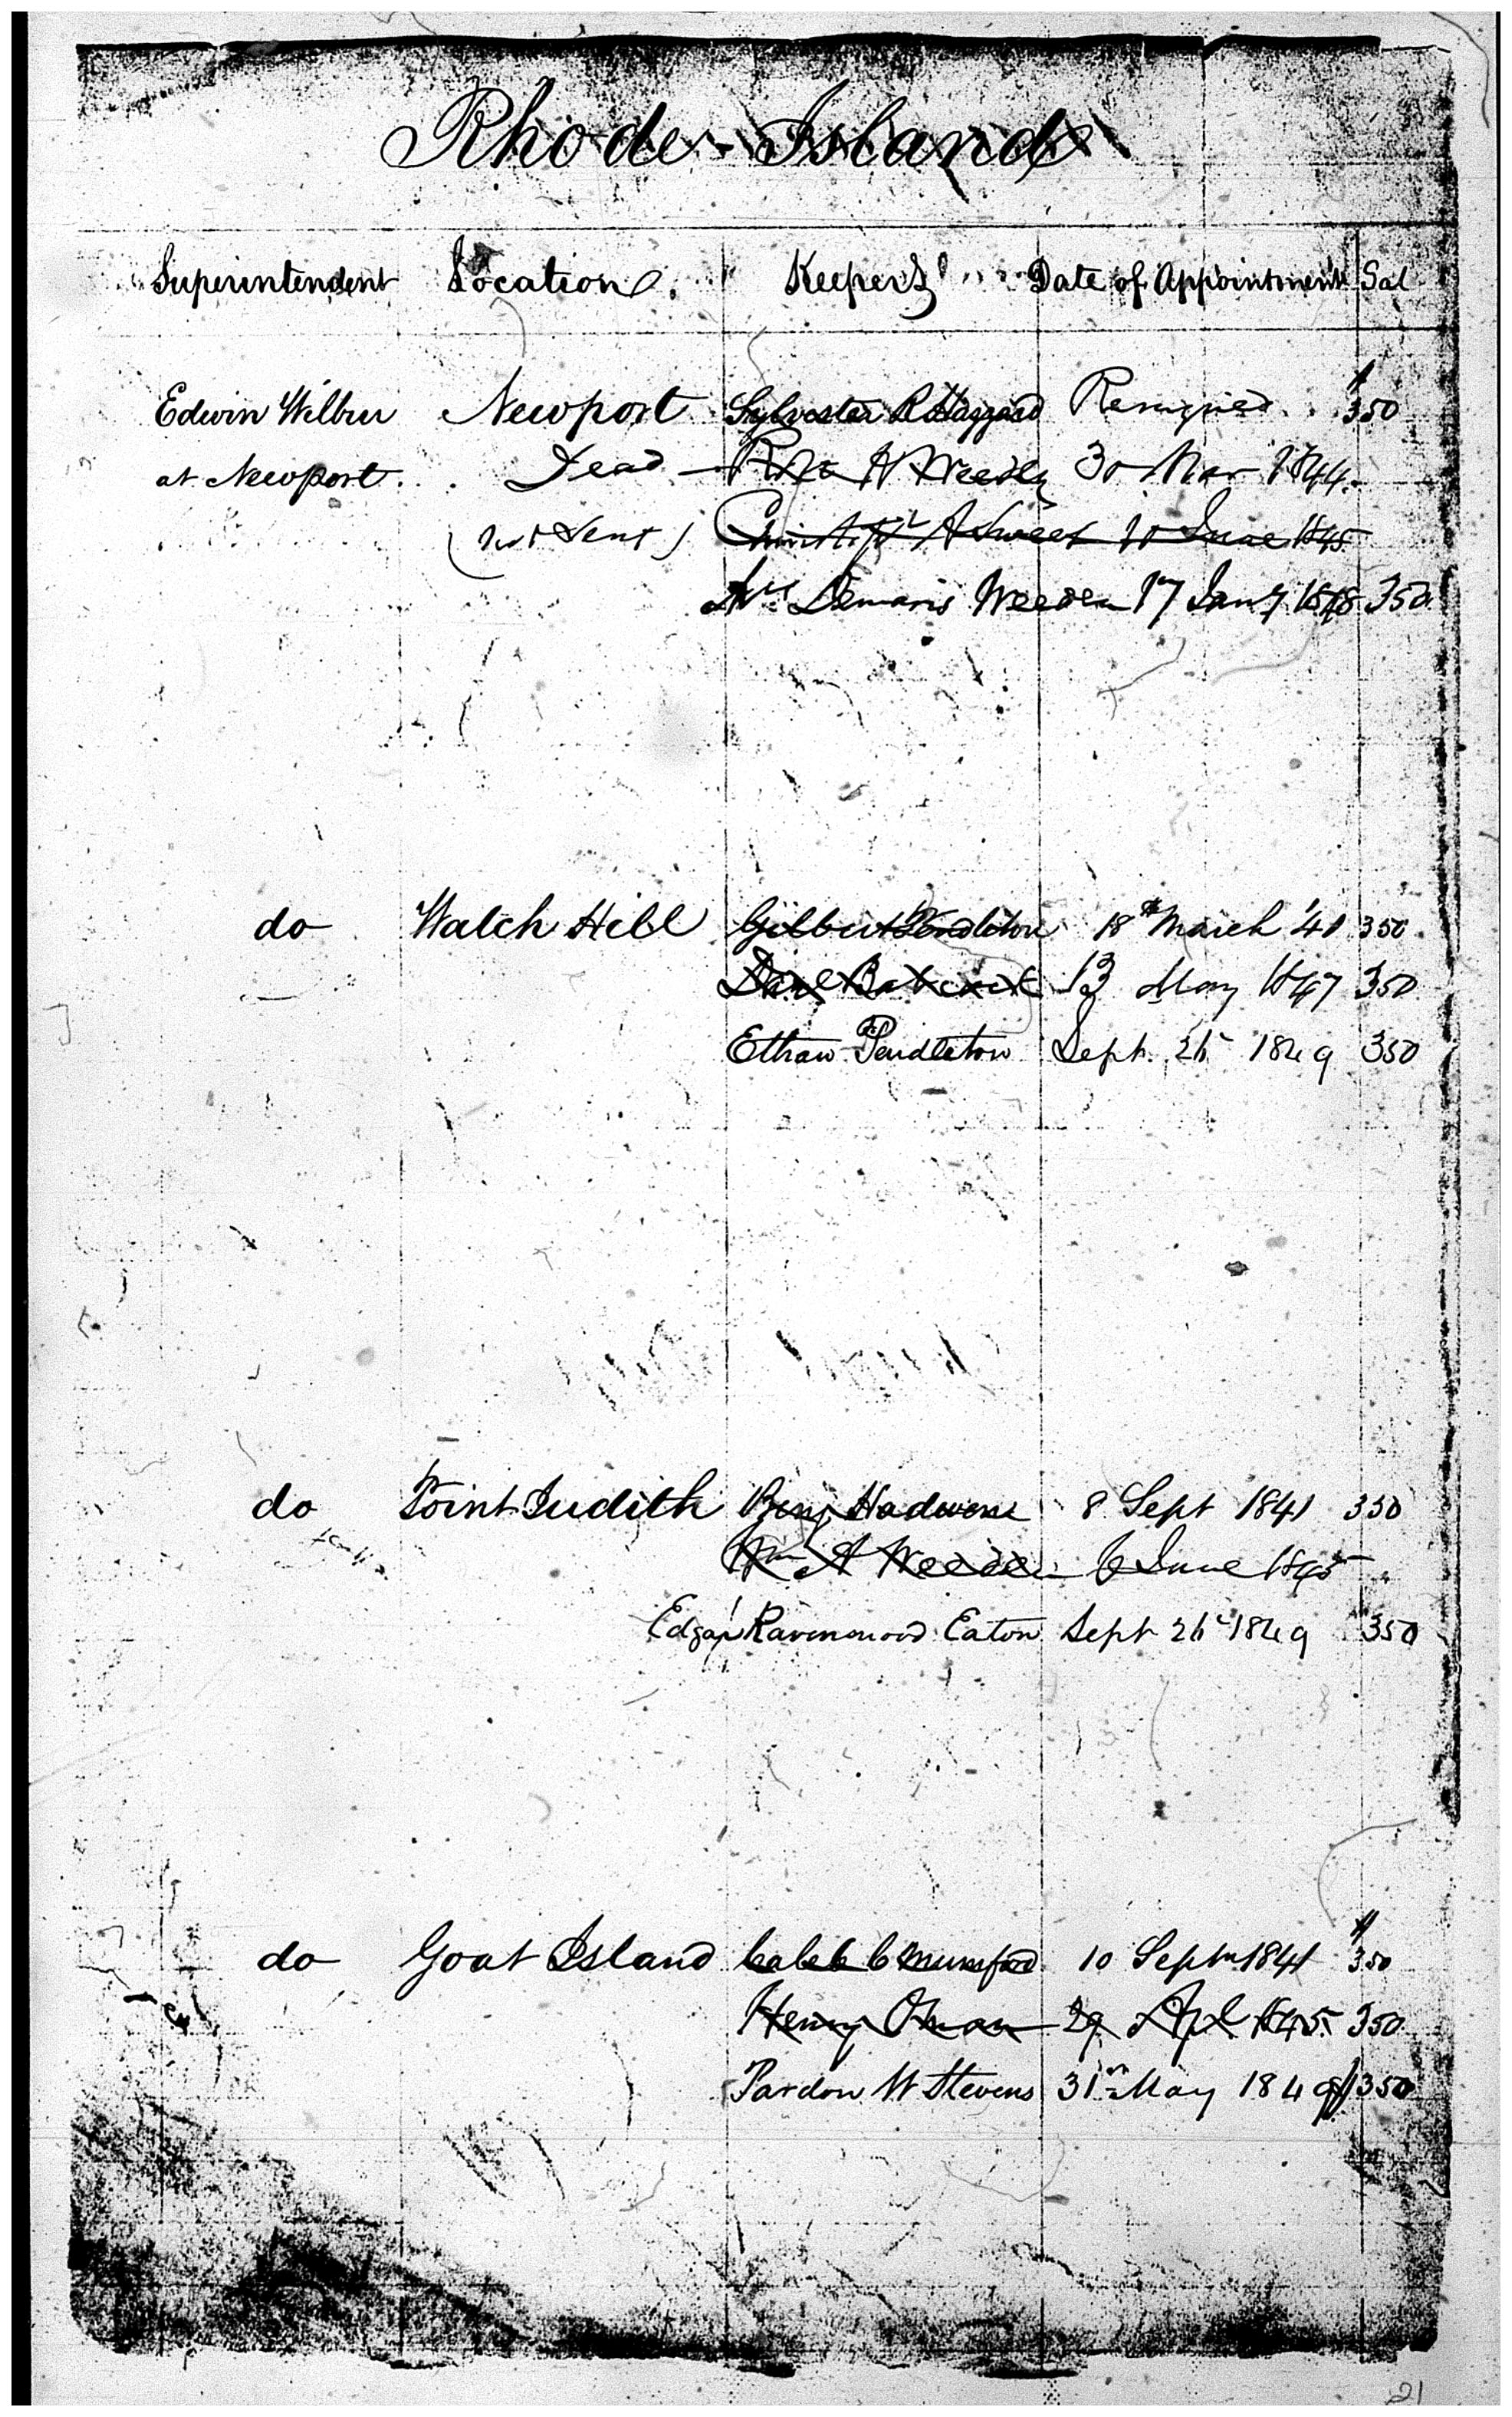 Rhode-Island
Superintendent Location. Keepers Date of Appointment Sal
Edwin Wilbur Newport Sylvester R Hazzard Resigned $350
at Newport. Dead - Robt H Weeden 30 Mar 1844.
(not sent) Christopr A Sweet 10 June 1845
Mrs Demaris Weeden 17 Jany 1848 350
do Watch Hill Gilbert Pendleton 18th March '40 350
Danl Babcock 13 May 1847 350
Ethan Pendleton Sept. 26 1849 350
do Point Judith Benj Hadwen 8 Sept 1841 350
Wm A Weeden 6 June 1845
Edgar Ravenswood Eaton Sept 26 1849 350
do Goat Island Caleb C Mumford 10 Sept 1841 $350
Henry Oman 29 Apl 1845 350
Pardon W Stevens 31st May 1849 350
21